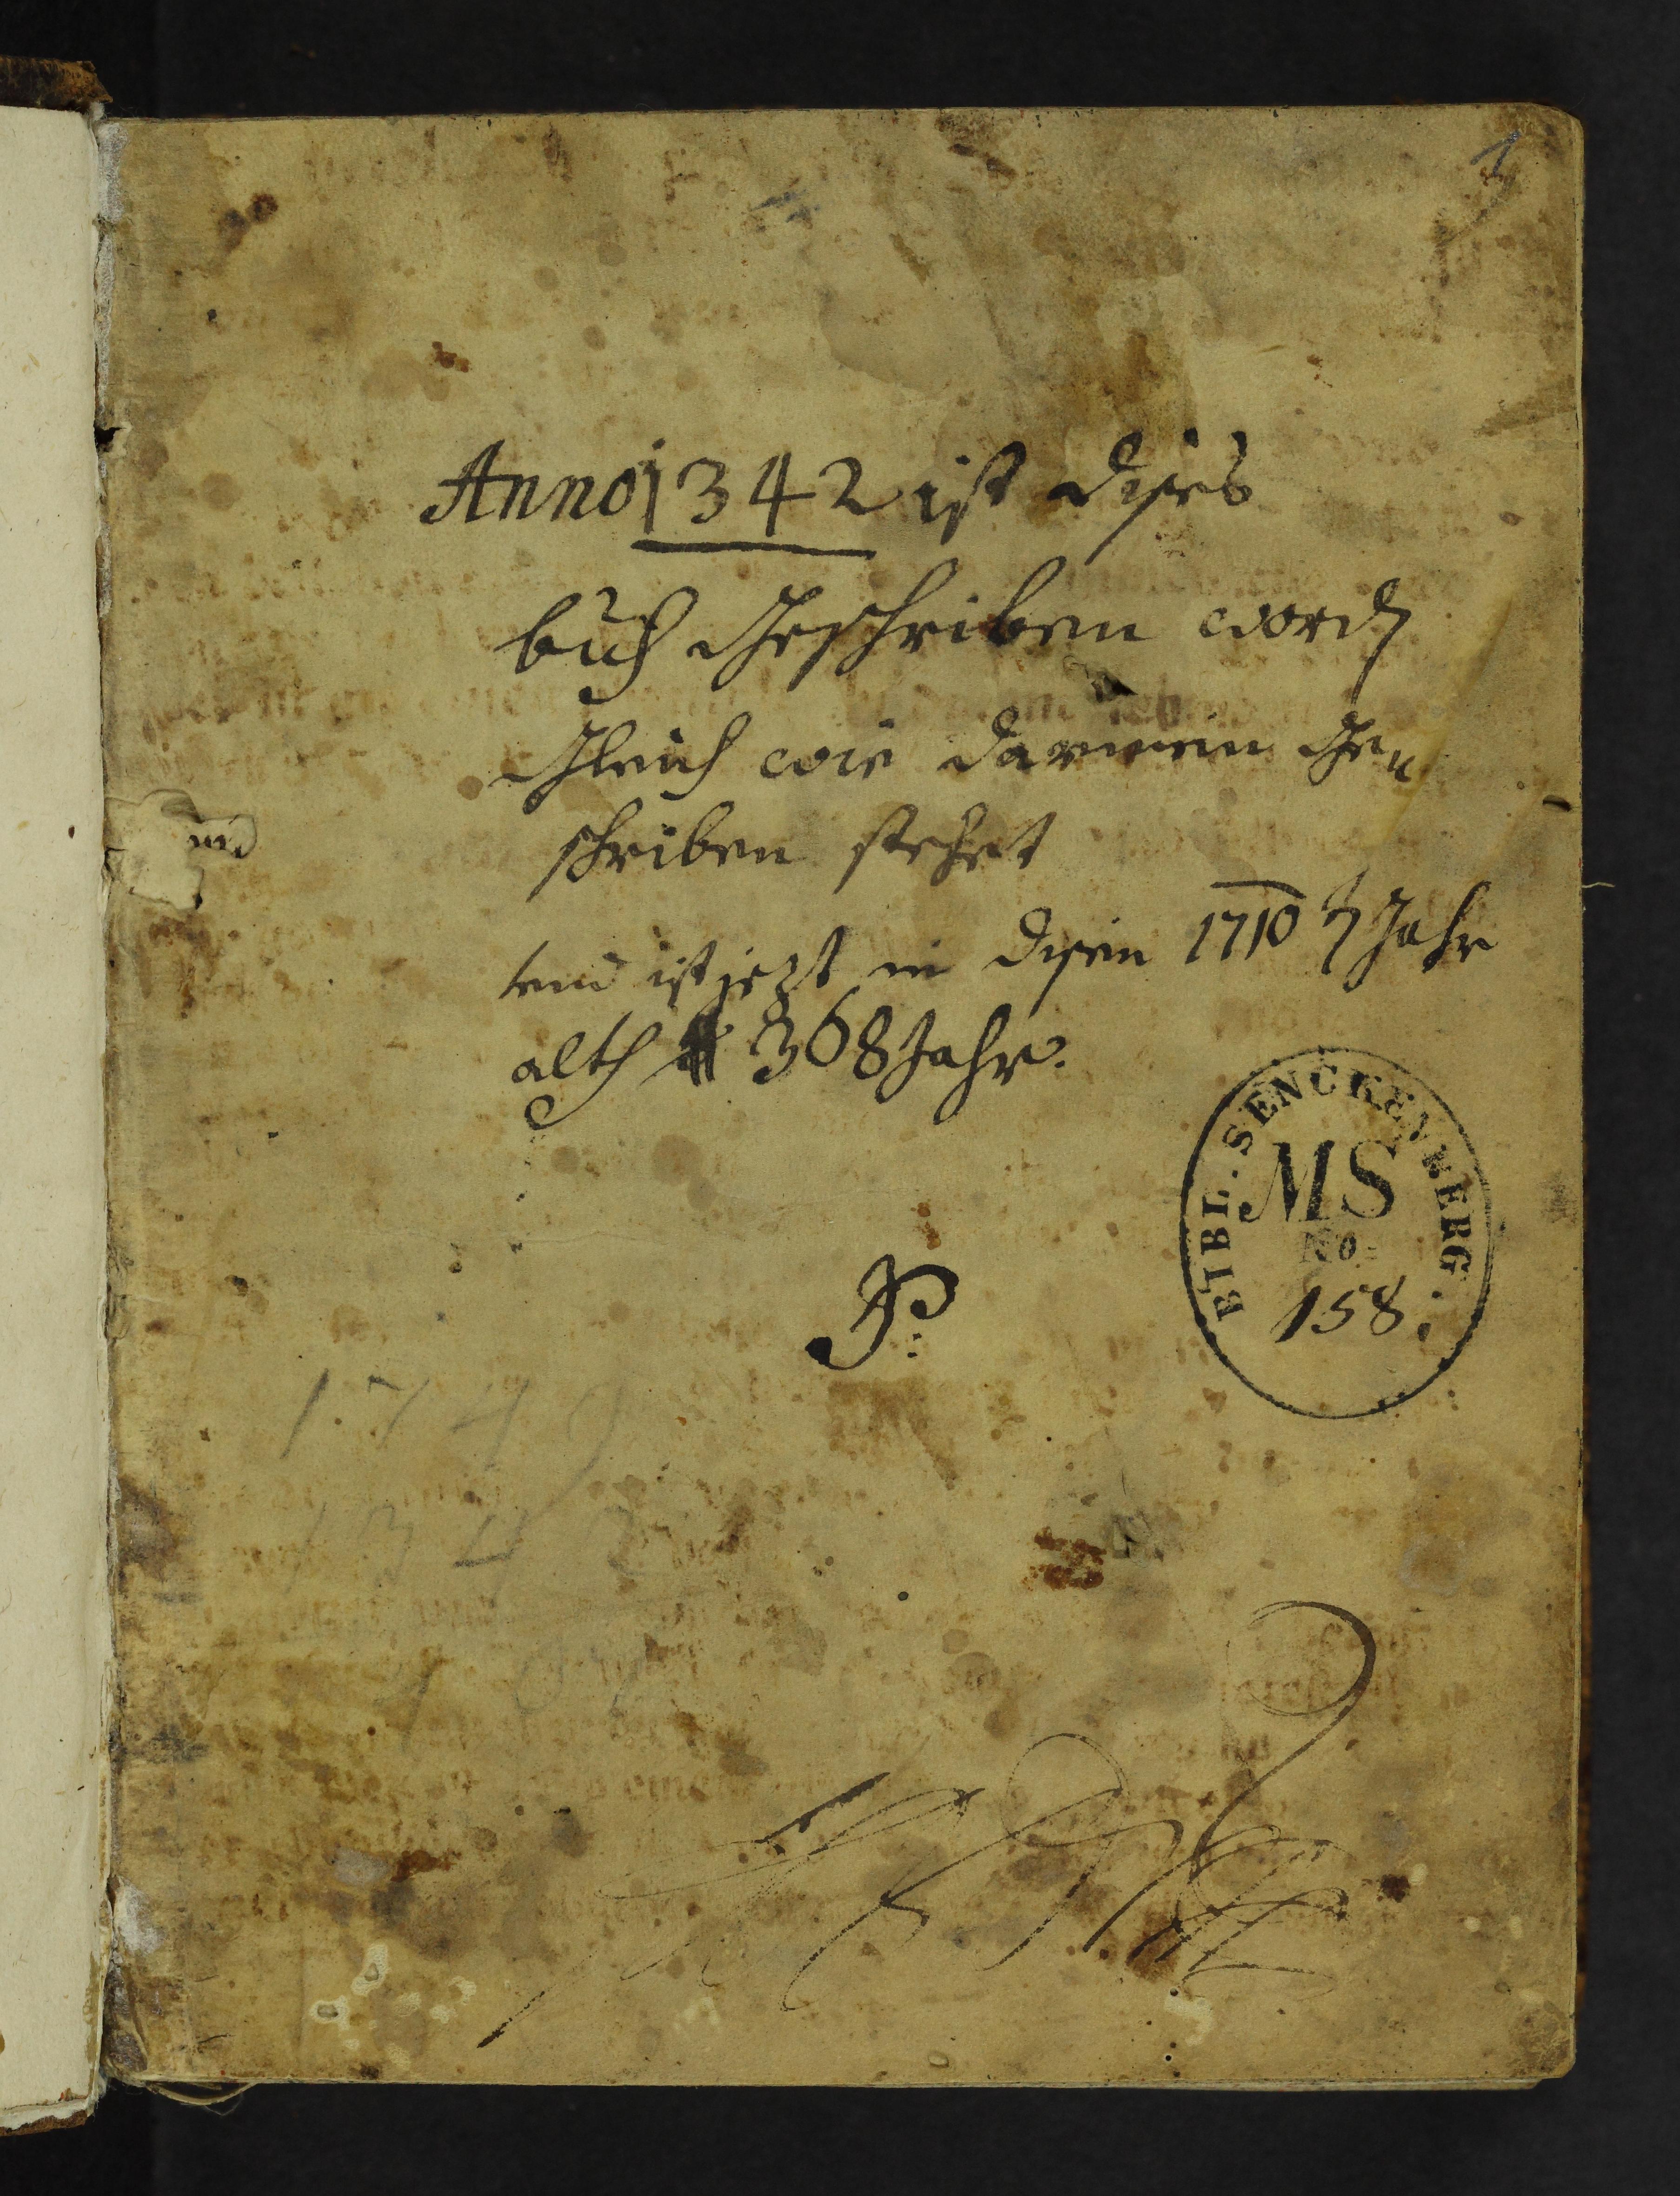 1
Anno 1342 ist dises
buch Geschriben word
Gleich wie darinnen Ge„
schriben stehet
vnd ist jezt in disem 1710 t Jahr
alth 368 Jahr.
BIBL. SENCKENBERG.
MS
No:
158.
1749
1342